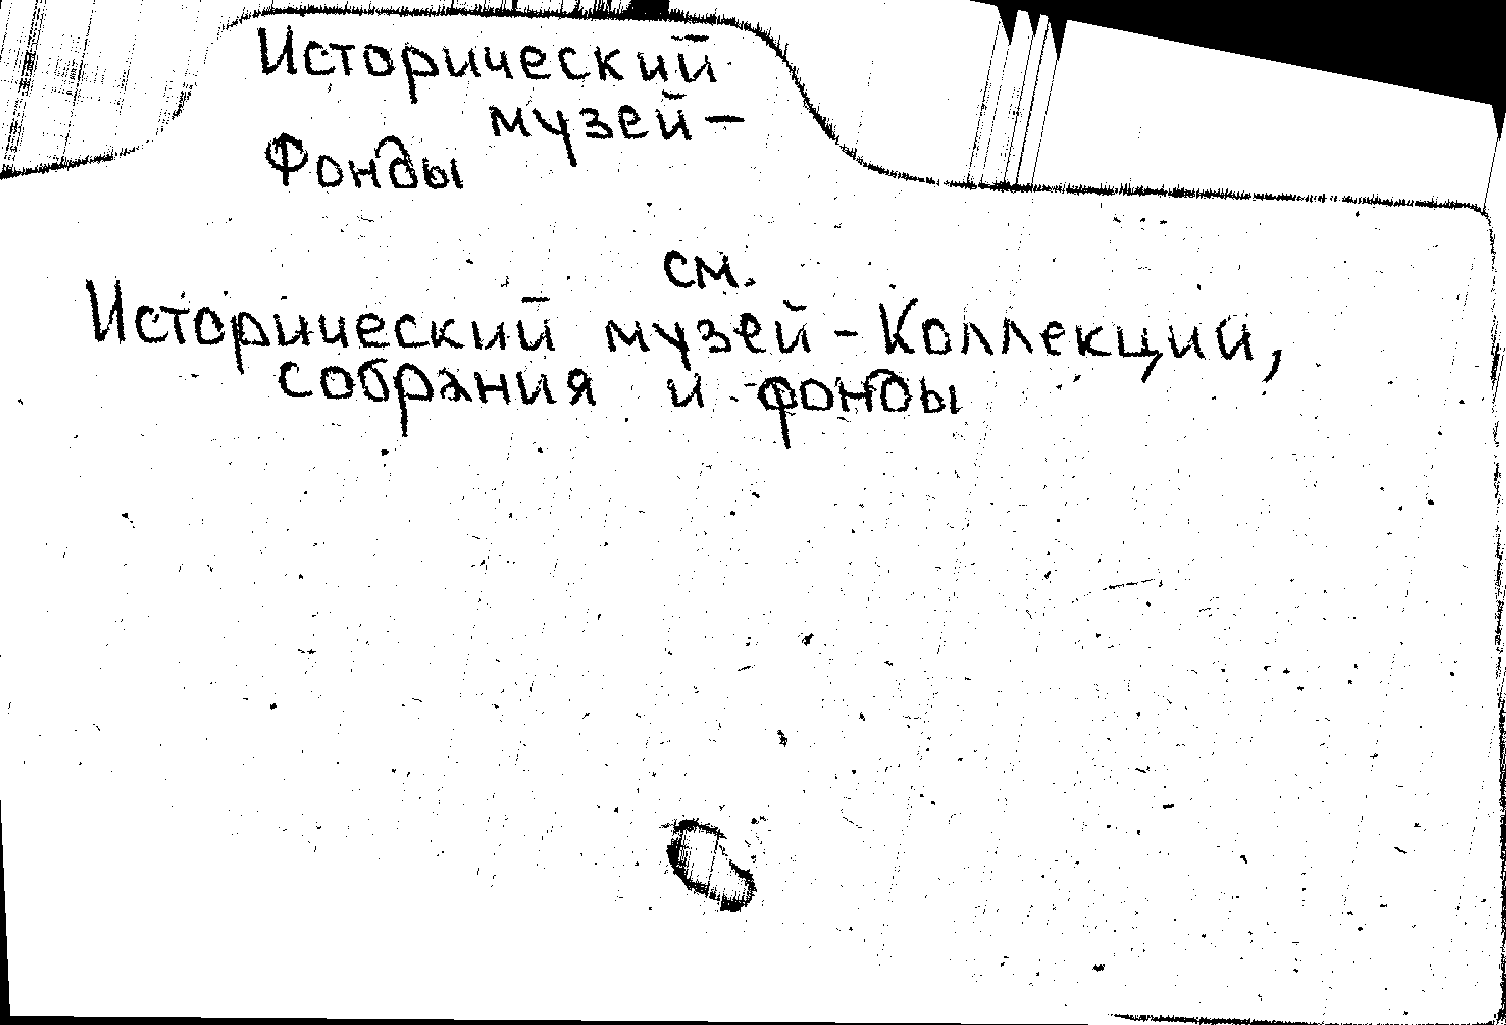 Исторический
музей-
Фонды
см.
Исторический музей - Коллекции,
собрания и фонды